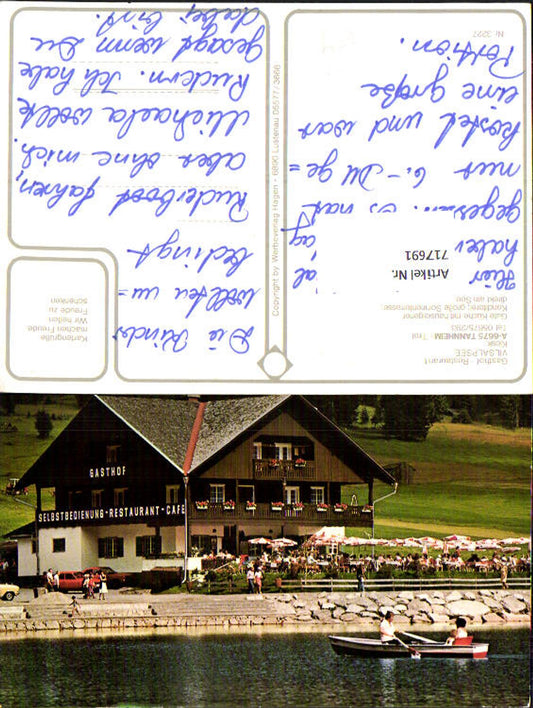 Nr. 3227
Gasthof - Restaurant
VILSALPSEE
Kiosk
A-6675 TANNHEIM / Tirol
Tel. 05675/293
Gute Küche mit hauseigener
Konditorei, große Sonnenterrasse
direkt am See
Hier
haben
gegessen. Es hat
nur 6.- DM ge=
kostet und war
eine große
Portion.
Artikel Nr.
717691
Copyright by Werbeverlag Hagen · 6890 Lustenau 05577/3666
Die Kinder
wollten un=
bedingt
Ruderboot fahren,
aber ohne mich.
Michaela wollte
Rudern. Ich habe
gesagt wenn Du
dabei bist.
Kartengrüße
machen Freude
Wir helfen
Freude zu
schenken
GASTHOF
SELBSTBEDIENUNG-RESTAURANT-CAFE